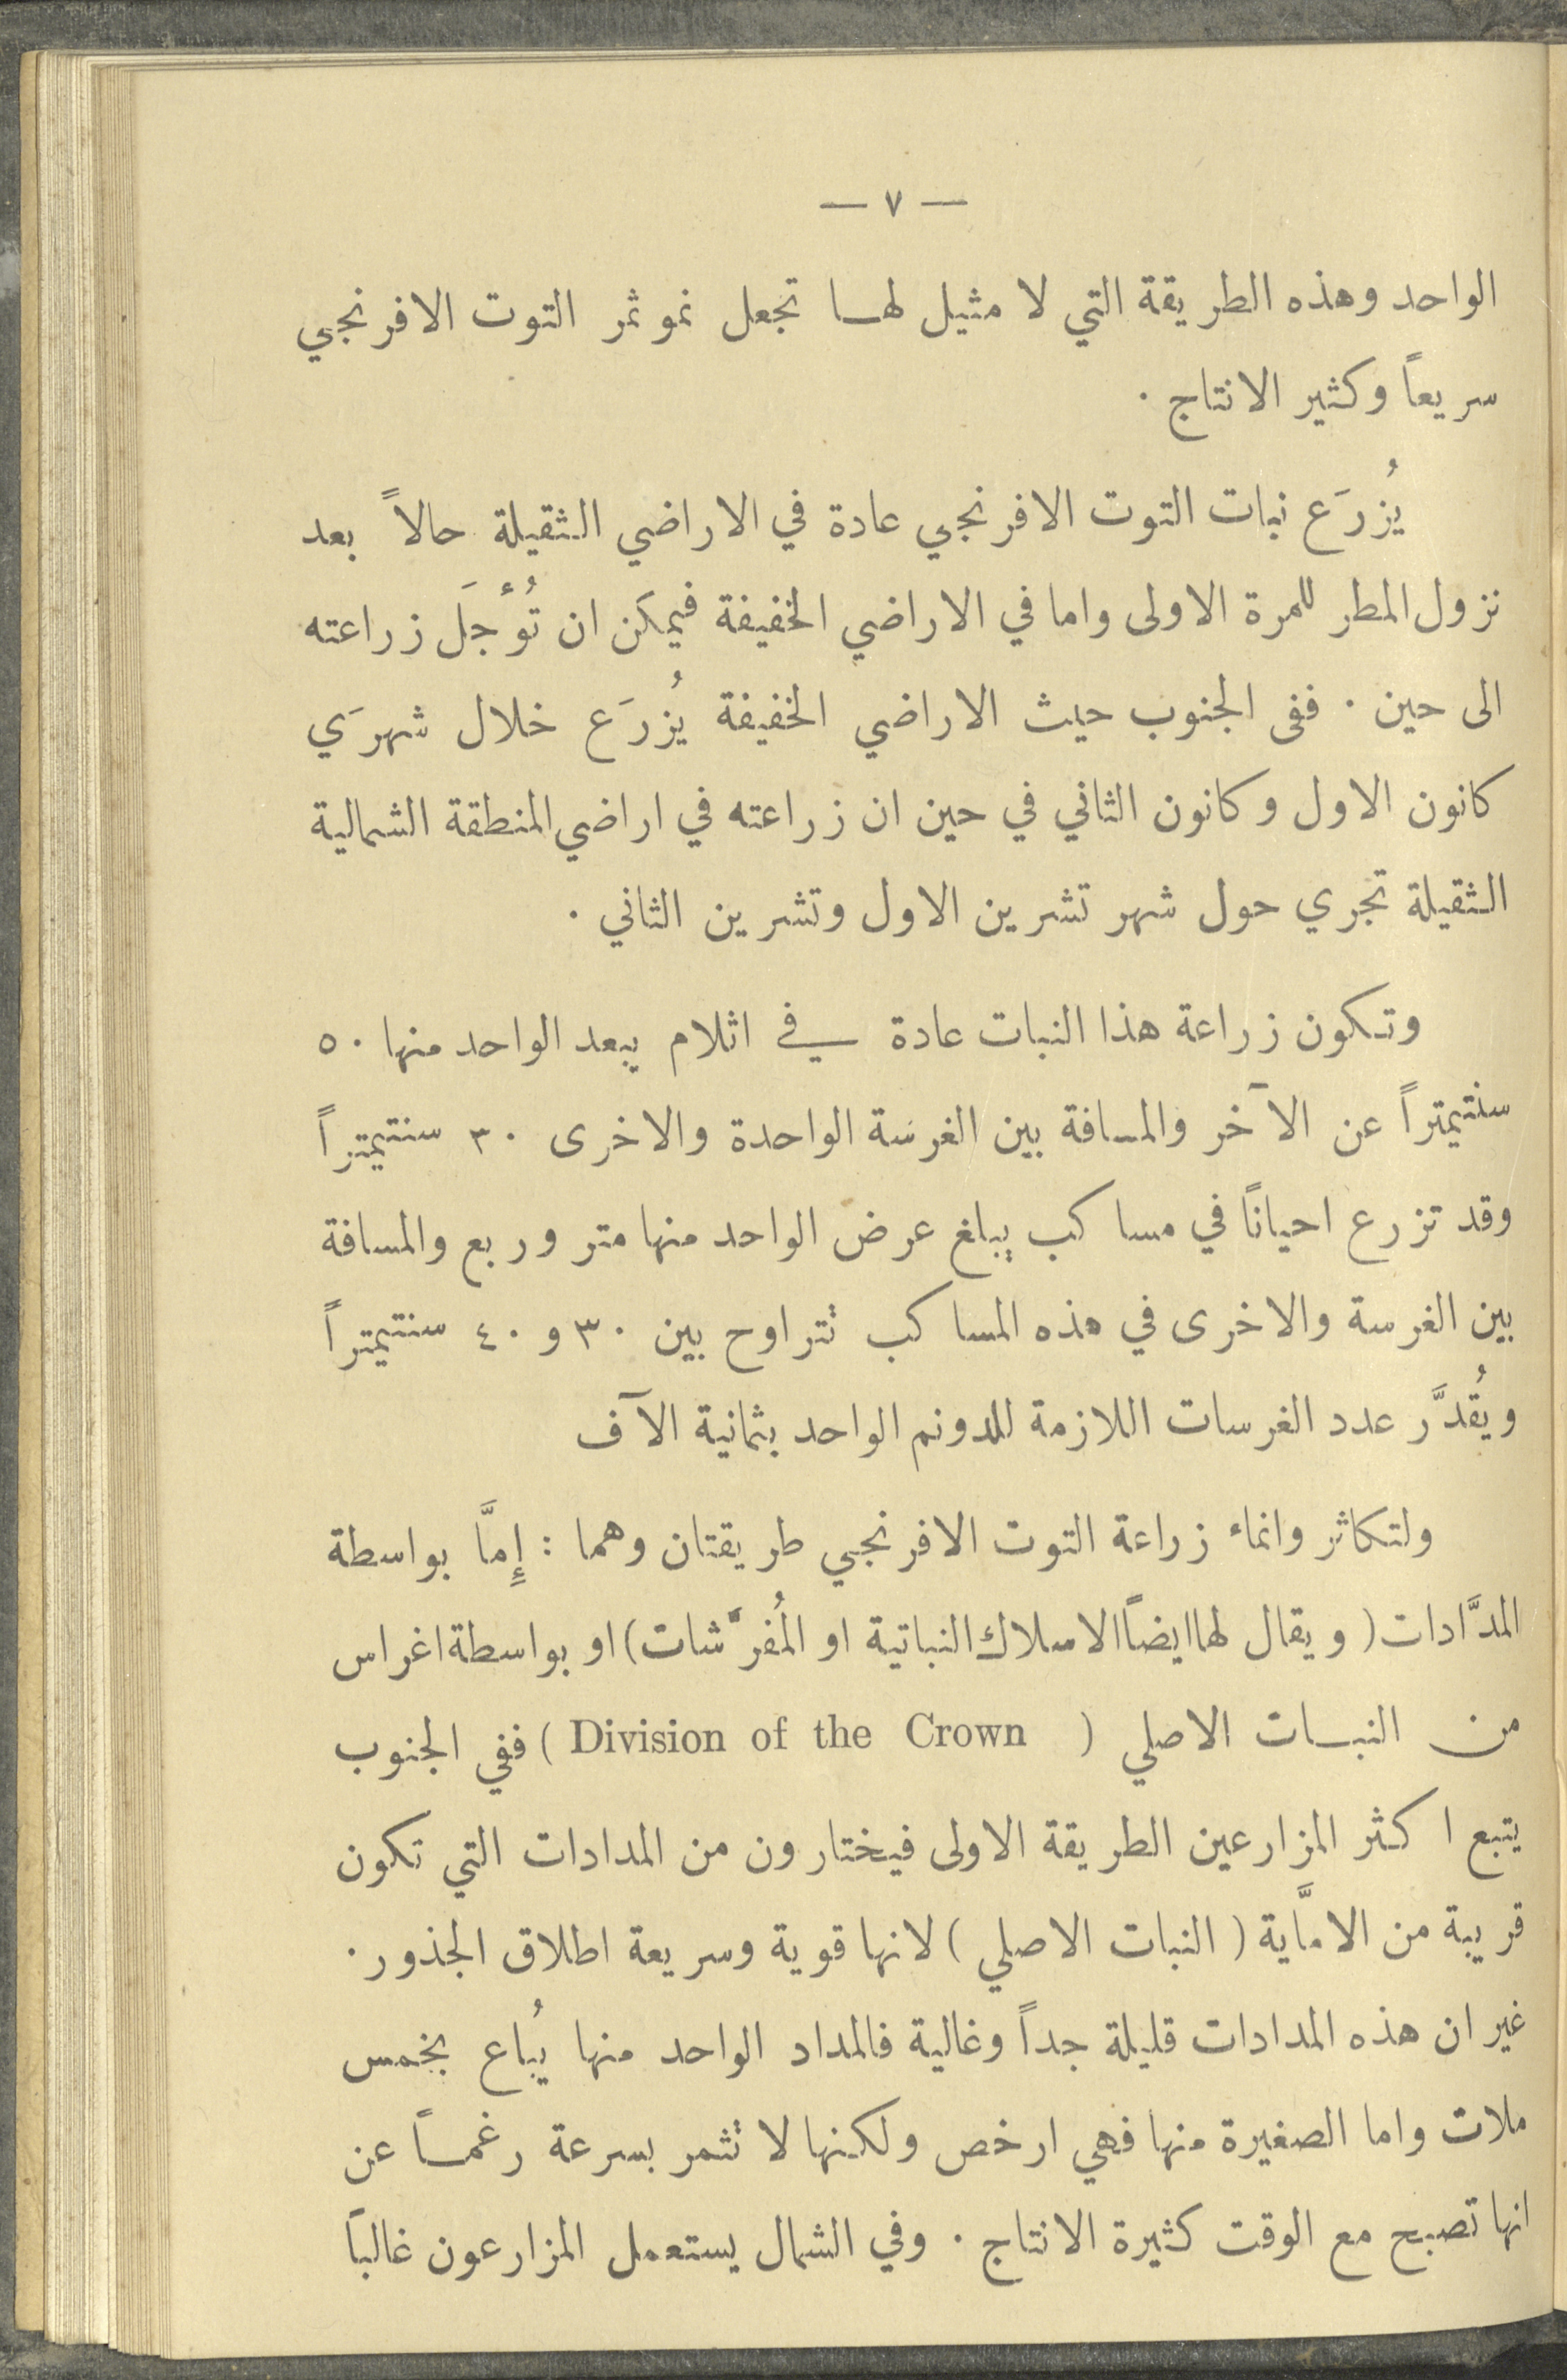 — ٧ —
الواحد وهذه الطريقة التي لا مثيل لها تجعل نمو ثمر التوت الافرنجي
سريعاً وكثير الانتاج ·
يُزرَع نبات التوت الافرنجي عادة في الاراضي الثقيلة حالاً بعد
نزول المطر للمرة الاولى واما في الاراضي الخفيفة فيمكن ان تُؤجَل زراعته
الى حين · ففى الجنوب حيث الاراضي الخفيفة يُزرَع خلال شهرَي
كانون الاول وكانون الثاني في حين ان زراعته في اراضي المنطقة الشمالية
الثقيلة تجري حول شهر تشرين الاول وتشرين الثاني ·
وتكون زراعة هذا النبات عادة في اثلام يبعد الواحد منها ٥٠
سنتيمتراً عن الآخر والمسافة بين الغرسة الواحدة والاخرى ٣٠ سنتيمتراً
وقد تزرع احياناً في مساكب يبلغ عرض الواحد منها متر وربع والمسافة
بين الغرسة والاخرى في هذه المساكب تتراوح بين ٣٠ و ٤٠ سنتيمتراً
ويُقدَّر عدد الغرسات اللازمة للدونم الواحد بثمانية الآف
ولتكاثر وانماء زراعة التوت الافرنجي طريقتان وهما : إِمَّا بواسطة
المدَّادات ( ويقال لها ايضاً الاسلاك النباتية او المُفرَّشات ) او بواسطة اغراس
من النبات الاصلي ( Division of the Crown ) ففي الجنوب
يتبع اكثر المزارعين الطريقة الاولى فيختارون من المدادات التي تكون
قريبة من الامَّاية ( النبات الاصلي ) لانها قوية وسريعة اطلاق الجذور ·
غير ان هذه المدادات قليلة جداً وغالية فالمداد الواحد منها يُباع بخمس
ملات واما الصغيرة منها فهي ارخص ولكنها لا تثمر بسرعة رغماً عن
انها تصبح مع الوقت كثيرة الانتاج · وفي الشمال يستعمل المزارعون غالباً